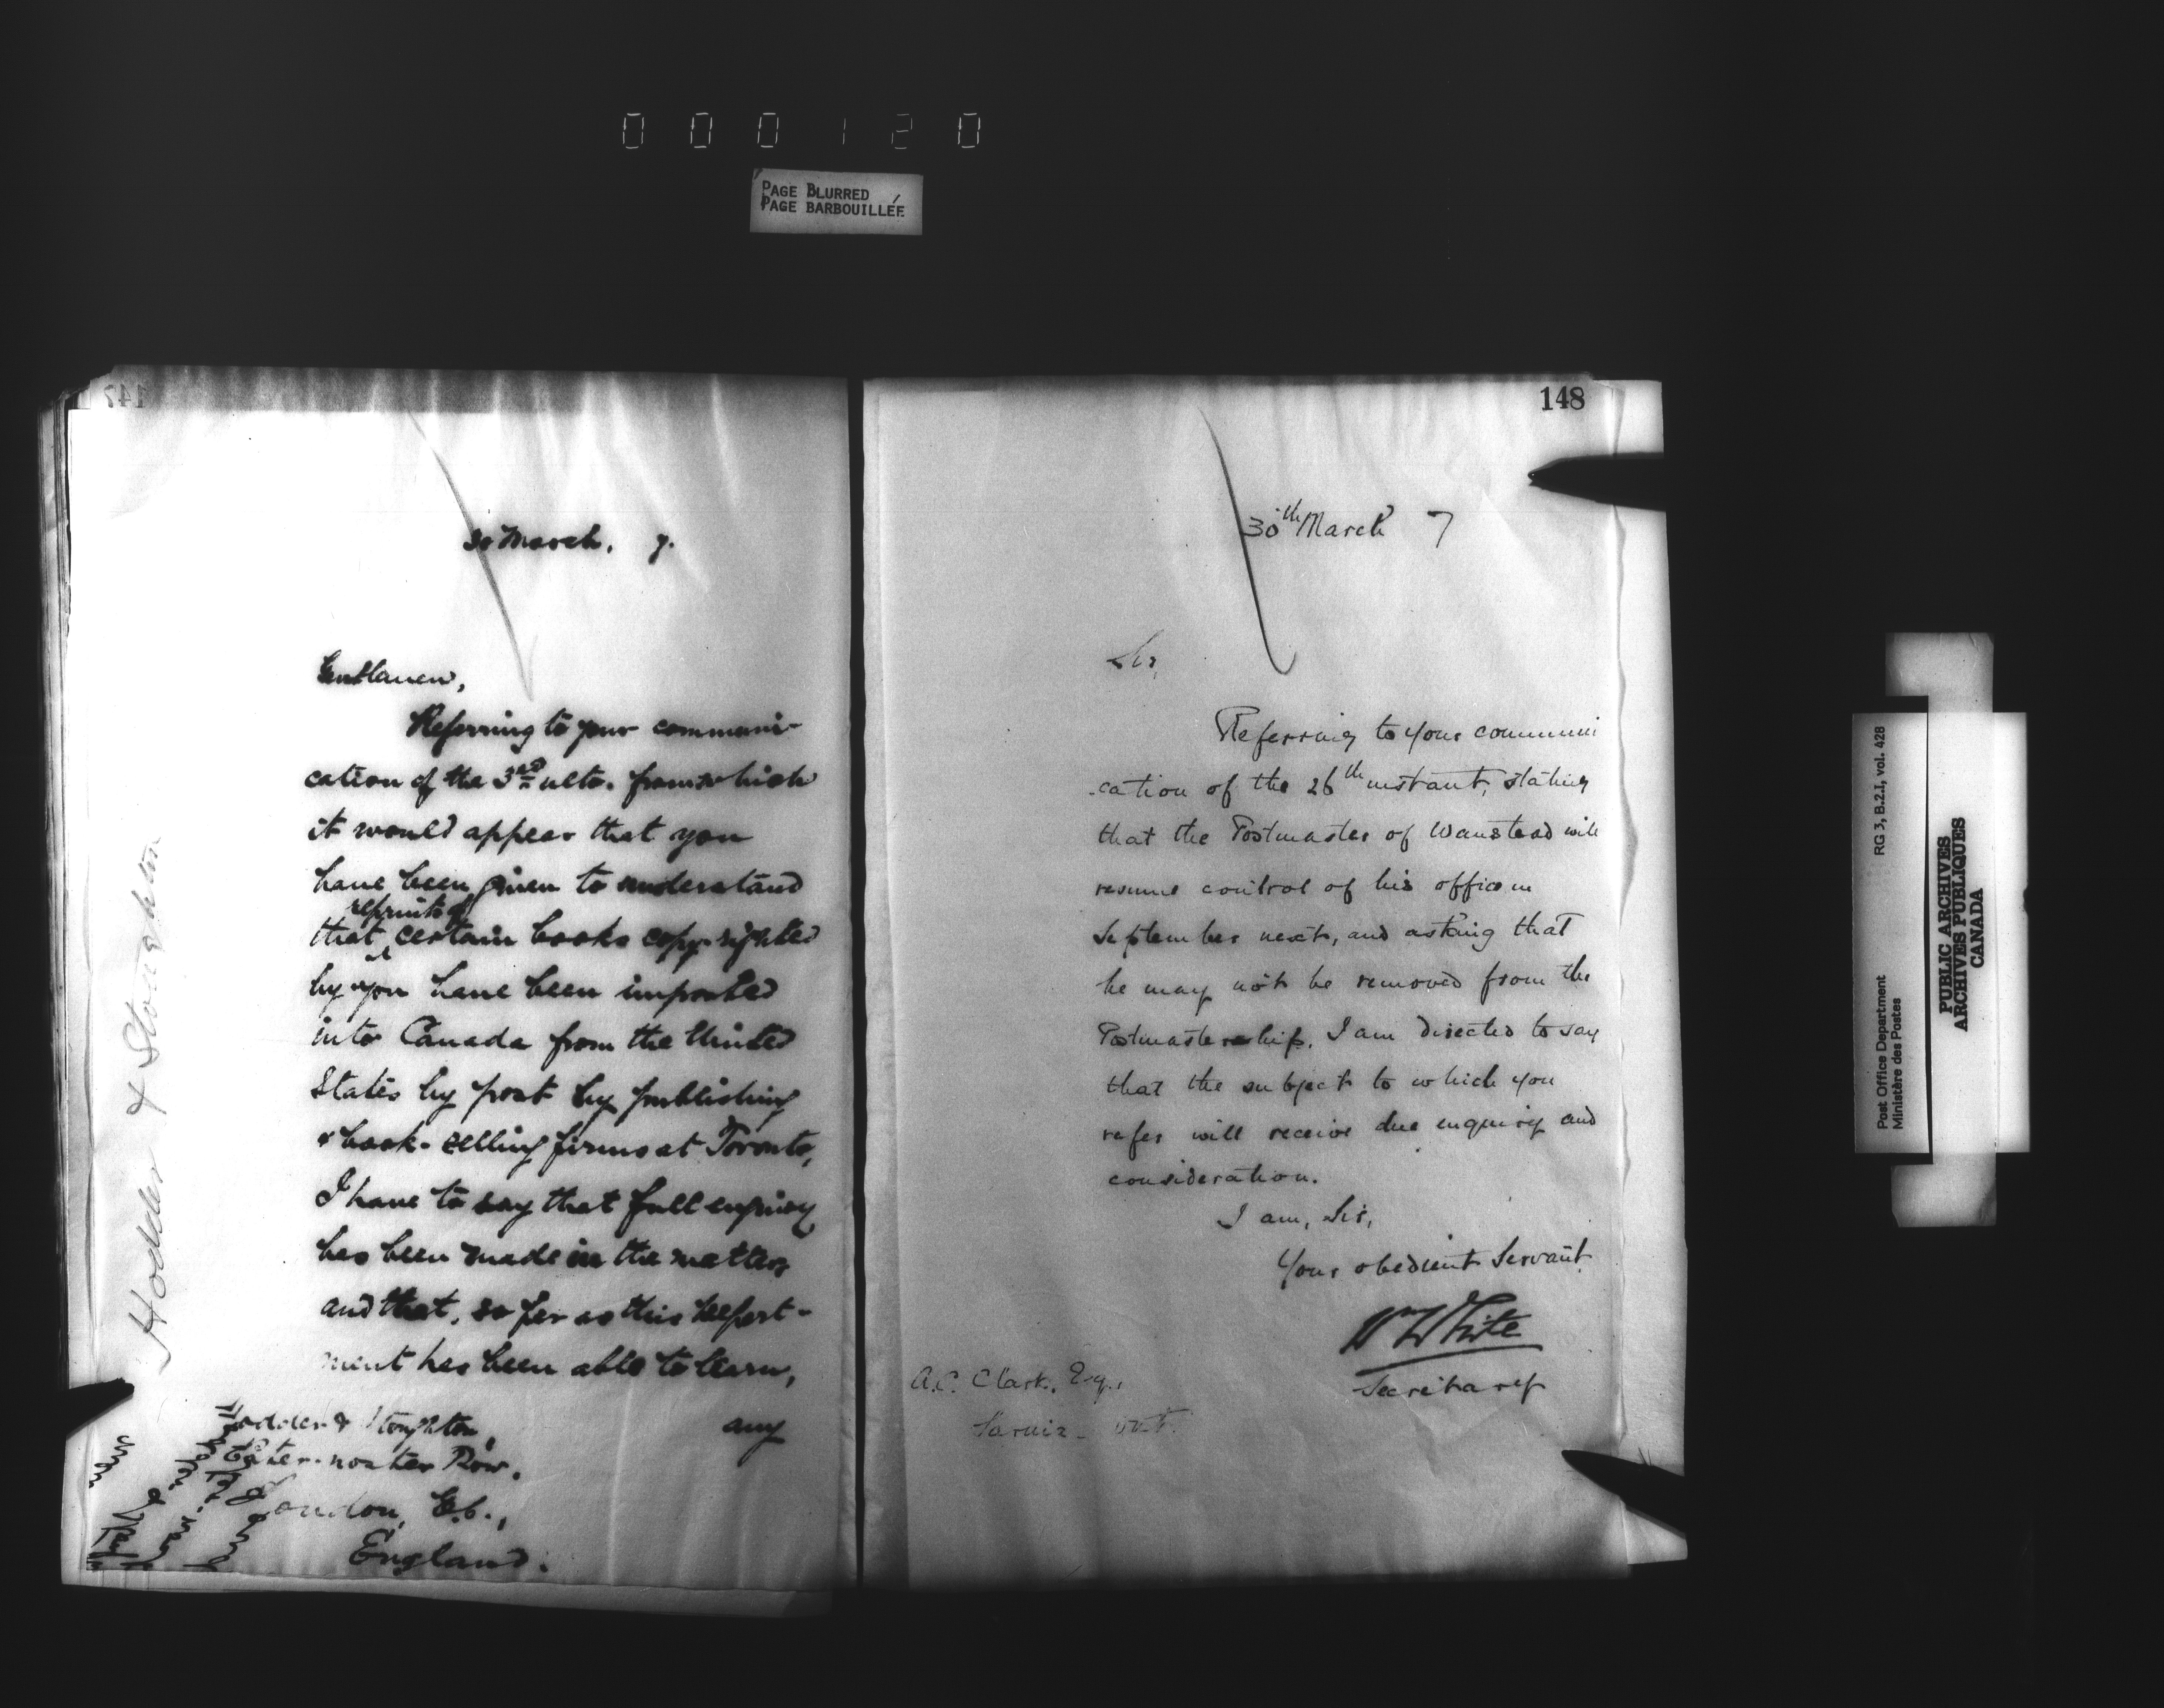 000120
PAGE BLURRED
PAGE BARBOUILLÉE
147
30 March. 7.
Gentlemen,
Referring to your communi-
cation of the 3rd ulto. from which
it would appear that you
have been given to understand
reprints of
that certain books copy-righted
by you have been imported
into Canada from the United
States by post by publishing
& book-selling firms at Toronto,
I have to say that full enquiry
has been made in the matter,
and that, so far as this Depart-
ment has been able to learn,
any
Hodder & Stoughton,
Pater-noster Row,
London, E.C.,
England.
Hodder & Stoughton
148
30th March 7
Sir,
Referring to your communi
-cation of the 26th instant, stating
that the Postmaster of Wanstead will
resume control of his office in
September next, and asking that
he may not be removed from the
Postmastership, I am directed to say
that the subject to which you
refer will receive due enquiry and
consideration.
I am, Sir,
Your obedient Servant
Wm White
Secretary
A.C. Clark, Esq.,
Sarnia - Ont.
Post Office Department
Ministère des Postes
RG 3, B.2.I, vol. 428
PUBLIC ARCHIVES
ARCHIVES PUBLIQUES
CANADA